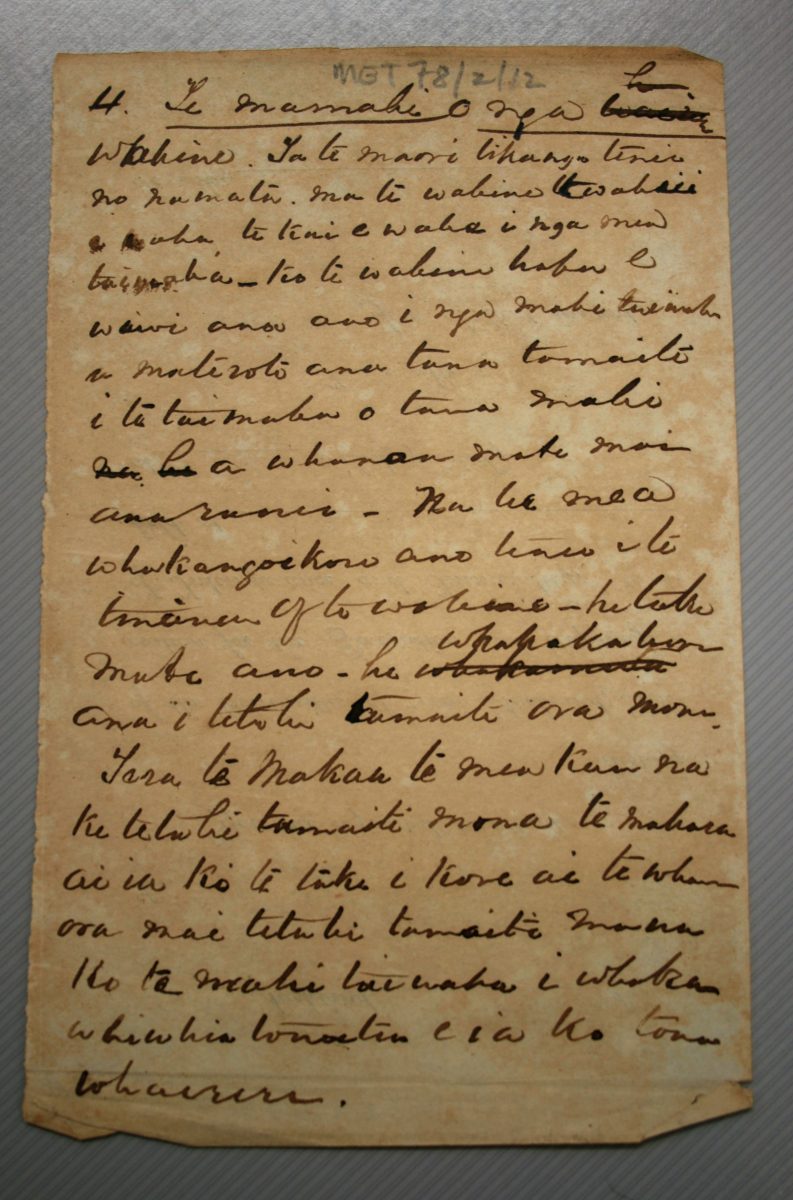 MET 78/2/12
4. Te mamahi o nga
wahine. Ta te maori tikanga tenei
no namata. ma te wahine
te kai e waha i nga mea
ko te wahine hapu e
wiwi ana ano i nga mahi
a materoto ana tana tamaiti
i te taimaha o tana mahi
na he a whanau mate mai
ana ranei - Na he mea
whakangoikore ano tenei i te
tinana o te wahine - he take
mate ano - he
ana i tetahi tamaiti ora mona.
Tera te Makau te mea kau na
ke tetahi tamaiti mona te mahara
ai ia ko te take i kore ai te whan
ora mai tetahi tamaiti mana
Ko te mahi taimaha i whaka
whiwhia tonutia e ia ko tona
whaereere.